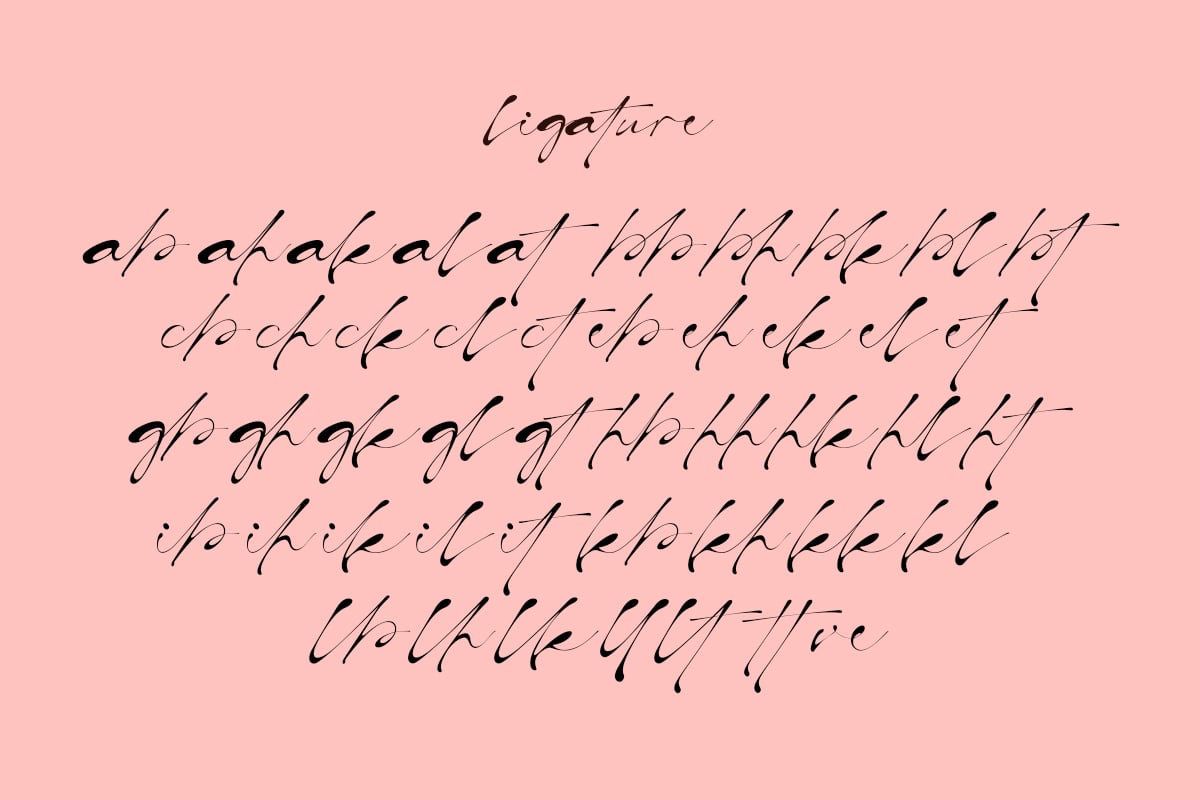 ligature
ab ah ak al at bb bh bk bl bt
cb ch ck cl ct eb eh ek el et
gb gh gk gl gt hb hh hk hl ht
ib ih ik il it kb kh kk kl
lb lh lk ll lt tt ve